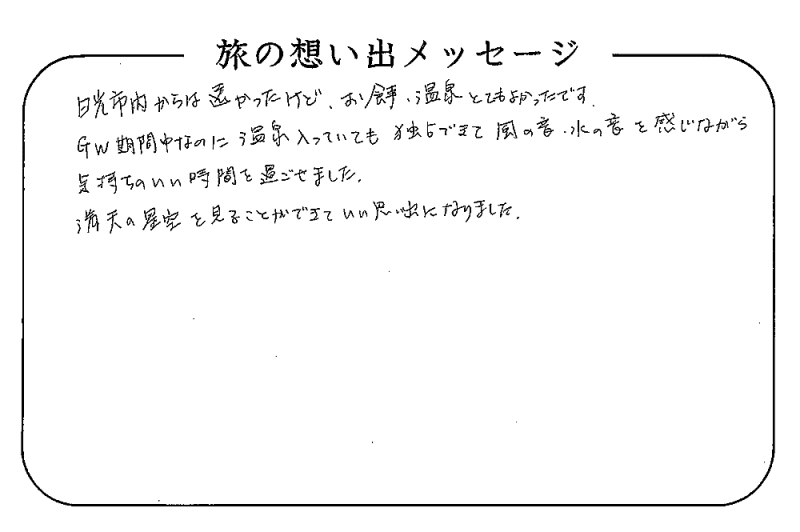 旅の想い出メッセージ
日光市内からは遠かったけど、お食事、温泉とてもよかったです。
GW期間中なのに温泉入っていても独占できて風の音・水の音を感じながら
気持ちのいい時間を過ごせました。
満天の星空を見ることができていい思い出になりました。